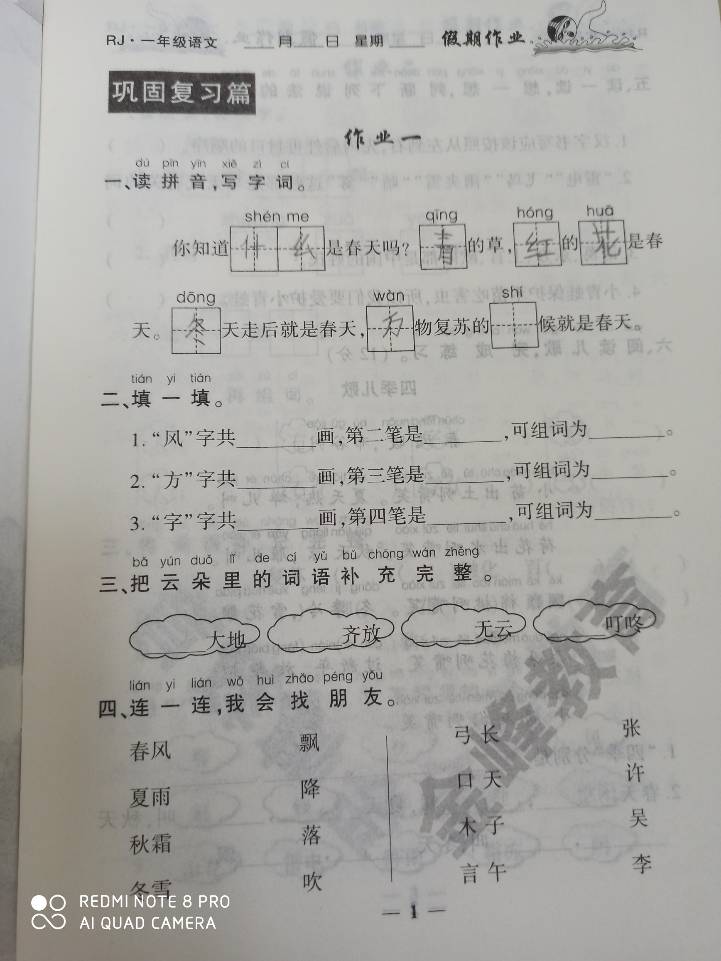 RJ·一年级语文 ____月____日 星期____ 假期作业
巩固复习篇
作业一
dú pīn yīn xiě zì cí
一、读拼音,写字词。
shén me qīng hóng huā
你知道什么是春天吗?青的草,红的花是春
dōng wàn shí
天。冬天走后就是春天,万物复苏的 候就是春天。
tián yi tián
二、填一填。
1.“风”字共______画,第二笔是______,可组词为______。
2.“方”字共______画,第三笔是______,可组词为______。
3.“字”字共______画,第四笔是______,可组词为______。
bǎ yún duǒ lǐ de cí yǔ bǔ chōng wán zhěng
三、把云朵里的词语补充完整。
大地 齐放 无云 叮咚
lián yi lián wǒ huì zhǎo péng yǒu
四、连一连,我会找朋友。
春风 飘 弓长 张
夏雨 降 口天 许
秋霜 落 木子 吴
冬雪 吹 言午 李
— 1 —
金峰教育
REDMI NOTE 8 PRO
AI QUAD CAMERA